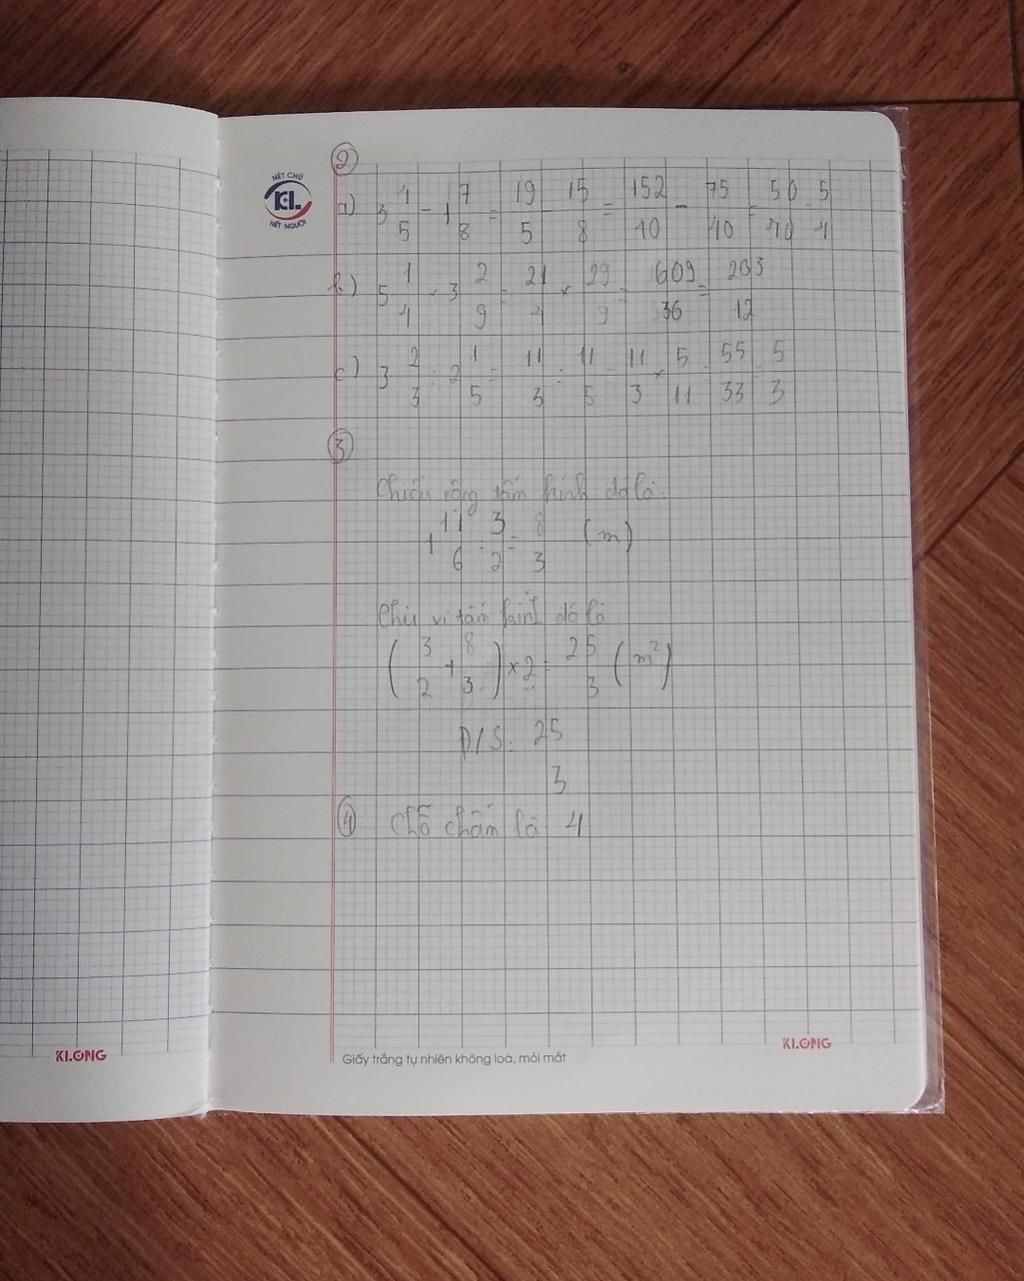 2
NÉT CHỮ
KL
NÉT NGƯỜI
a) 3 1/5 - 1 7/8 = 19/5 - 15/8 = 152/10 - 75/40 = 50/40 5/4
b) 5 1/4 × 3 2/9 = 21/4 × 29/9 = 609/36 = 203/12
c) 3 2/3 : 2 1/5 = 11/3 : 11/5 = 11/3 × 5/11 = 55/33 = 5/3
3
Chiều rộng tấm đó là.
1 11/6 : 3/2 = 8/3 (m)
Chu vi tấm đó là
(3/2 + 8/3) × 2 = 25/3 (m²)
Đ/S: 25/3
4 chỗ chấm là 4
KLONG
Giấy trắng tự nhiên không loá, mỏi mắt
KLONG